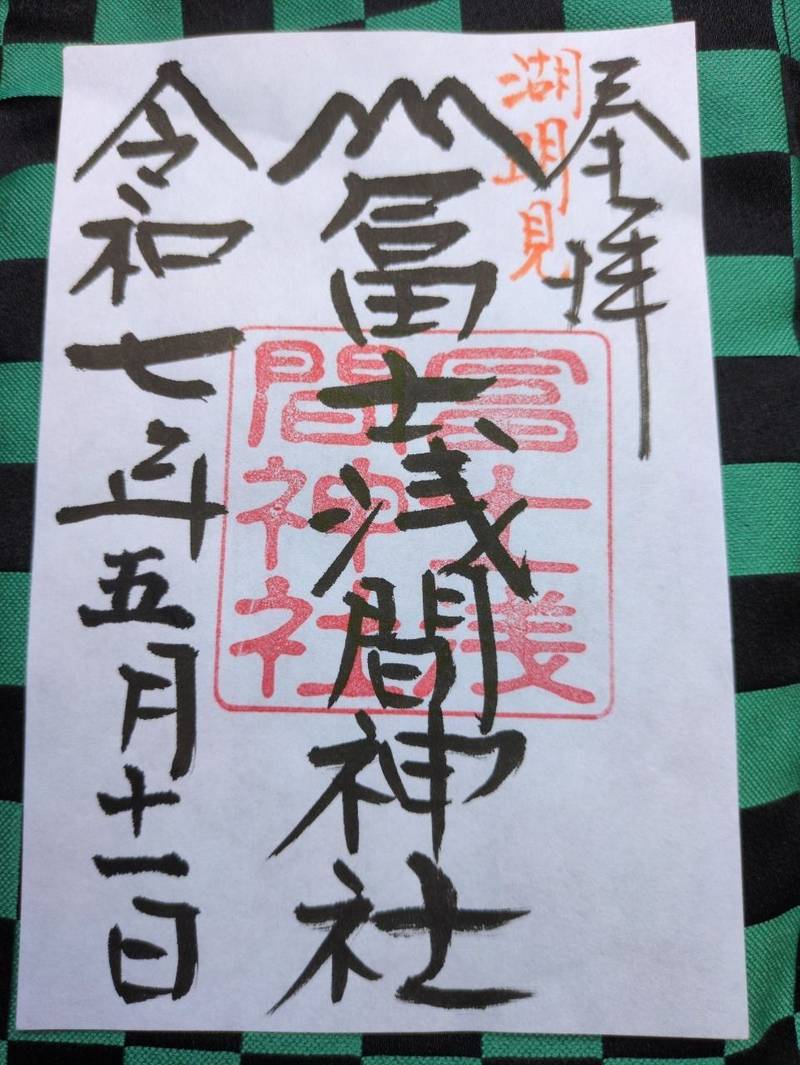 奉拝
湖明見
冨士浅間神社
冨士浅
間神社
令和七年五月十一日